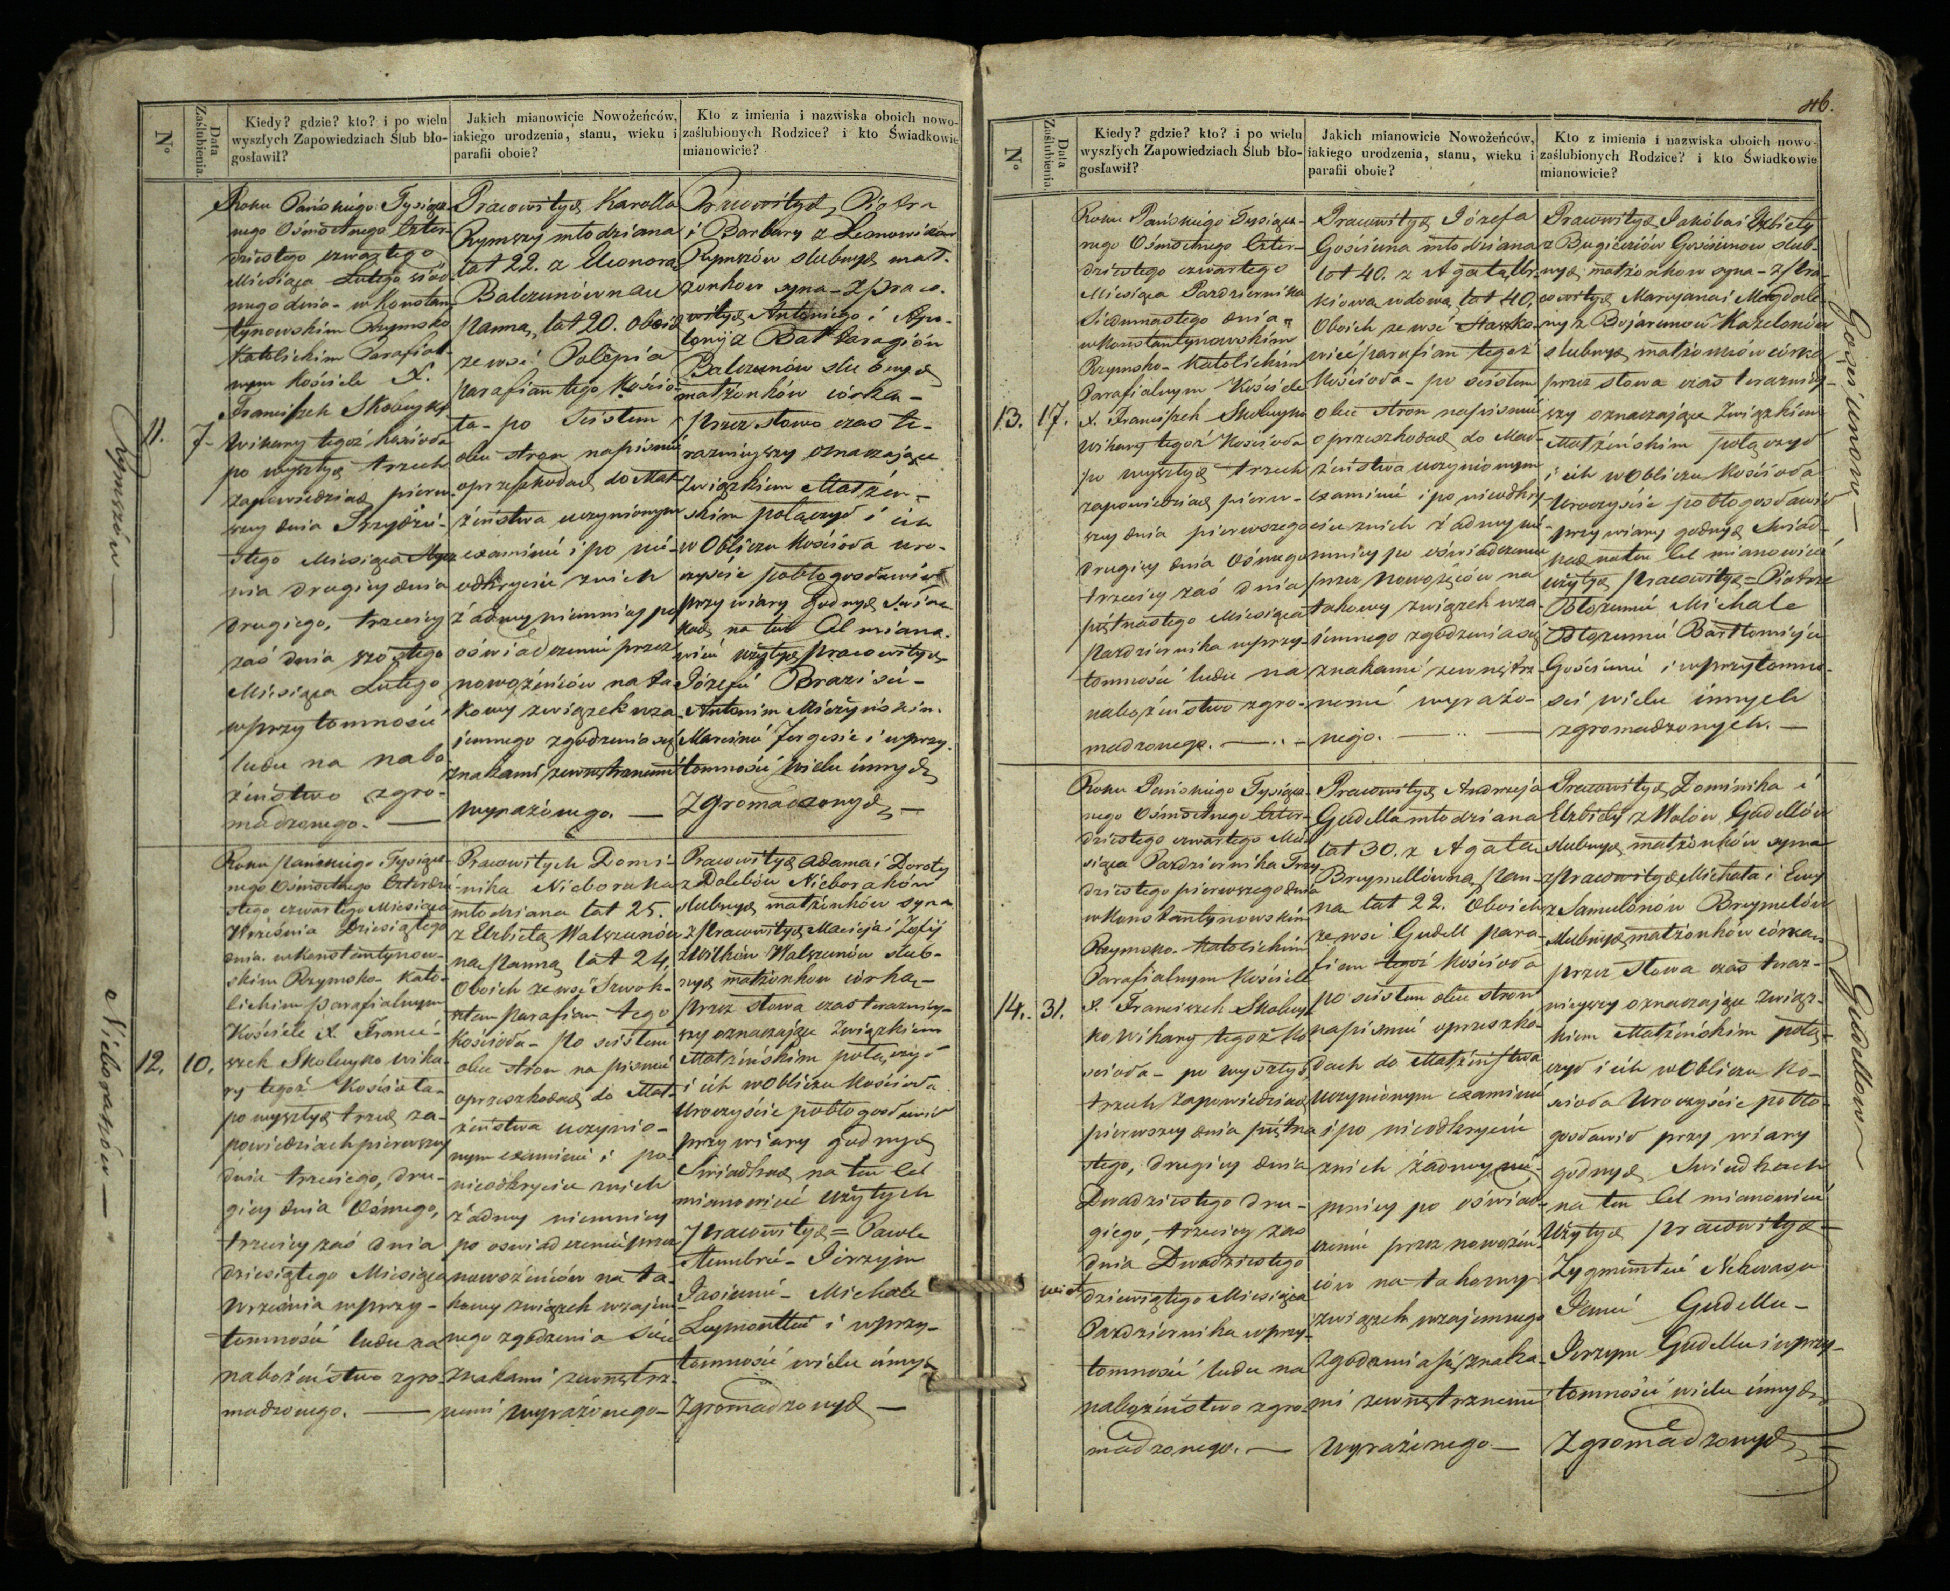 N°
Data Zaślubienia.
Kiedy? gdzie? kto? i po wielu
wyszłych Zapowiedziach Ślub bło-
gosławił?
Jakich mianowicie Nowożeńców,
iakiego urodzenia, stanu, wieku i
parafii oboie?
Kto z imienia i nazwiska oboich nowo-
zaślubionych Rodzice? i kto Świadkowie
mianowicie?
Rymszów
11.
7
Roku Pańskiego Tysiącz-
nego Ośmsetnego Czter-
dziestego czwartego
Miesiąca Lutego siód
mego dnia - w Konstan
tynowskim Rzymsko
Katolickim Parafial-
nym Kościele X.
Franciszek Skobeyko
Wikary tegoż kościoła
po wyszłych trzech
zapowiedziach pierw-
szey dnia Trzydzie-
stego Miesiąca Stycz
nia drugiey dnia
drugiego, trzeciey
zaś dnia szóstego
Miesiąca Lutego
w przytomności
ludu na nabo
żeństwo zgro-
madzonego. —
Pracowitych Karolla
Rymszy młodziana
lat 22. z Eleonorą
Balczunówną
panną lat 20. oboich
ze wsi Polepia
parafian tego kościo-
ła - po ścisłem
obu stron napiśmie
o przeszkodach do Mał-
żeństwa uczynionym
examinie i po nie-
odkryciu znich
żadney niemniey po
oświadczeniu przez
nowożeńców na ta
kowy związek wza
iemnego zgodzenia się
znakami zewnętrznemi
wyrażonego. —
Pracowitych Piotra
i Barbary z Leonowiczów
Rymszów ślubnych mał-
żonków syna - z praco-
witych Antoniego i Apo-
lonij z
Balczunów ślubnych
małżonków córką -
przez słowa czas te-
raznieyszy oznaczaiące
Związkiem Małżeń-
skim połączył i ich
w Obliczu Kościoła uro-
czyście pobłogosławił
przy wiary godnych Świad-
kach na ten Cel miano-
wicie użytych pracowitych
Józefie
Antonim
Marcinie i w przy-
tomności wielu innych
Zgromadzonych —
Nieboraków
12.
10.
Roku Pańskiego Tysiącz-
nego Ośmsetnego Czterdzie
stego czwartego Miesiąca
Września dziesiątego
dnia w Konstantynow-
skim Rzymsko Kato-
lickim parafialnym
Kościele X. Franci-
szek Skobeyko wika-
ry tegoż Kościoła
po wyszłych trzech za-
powiedziach pierwszey
dnia trzeciego, dru-
giey dnia Ósmego,
trzeciey zaś dnia
dziesiątego Miesiąca
Września w przy-
tomności ludu na
nabożeństwo zgro-
madzonego. —
Pracowitych Domi-
nika Nieboraka
młodziana lat 25.
z Elzbietą Walszunów
ną panną lat 24.
Oboich ze wsi
parafian tego
Kościoła - po ścisłem
obu stron na piśmie
o przeszkodach do Mał-
żeństwa uczynio-
nym examinie i po
nieodkryciu znich
żadney niemniey
po oświadczeniu przez
nowożeńców na ta-
kowy związek wzaiem-
nego zgodzenia się
znakami zewnętrz-
nemi wyrażonego —
Pracowitych Adama i Doroty
z Nieboraków
ślubnych małżonków syna
z pracowitych Macieja i Zofij
z Wilków Walszunów ślub-
nych małżonków córką -
przez słowa czas teraźniey-
szy oznaczaiące Związkiem
Małżeńskim połączył
i ich w Obliczu Kościoła
Uroczyście pobłogosławił
przy wiary godnych
Świadkach na ten cel
mianowicie Użytych
pracowitych = Pawle
Jerzym
Michale
i w przy-
tomności wielu innych
Zgromadzonych —
46.
N°
Data Zaślubienia.
Kiedy? gdzie? kto? i po wielu
wyszłych Zapowiedziach Ślub bło-
gosławił?
Jakich mianowicie Nowożeńców,
iakiego urodzenia, stanu, wieku i
parafii oboie?
Kto z imienia i nazwiska oboich nowo-
zaślubionych Rodzice? i kto Świadkowie
mianowicie?
Gościunow
13.
17.
Roku Pańskiego Tysiącz-
nego Ośmsetnego Czter-
dziestego czwartego
Miesiąca Pazdziernika
Siedmnastego dnia
w Konstantynowskim
Rzymsko-Katolickim
Parafialnym Kościele
X. Franciszek Skobeyko
Wikary tegoż Kościoła
po wyszłych trzech
zapowiedziach pierw-
szey dnia pierwszego
drugiey dnia Ósmego
trzeciey zaś dnia
piętnastego Miesiąca
Pazdziernika w przy-
tomności ludu na
nabożeństwo zgro-
madzonego. —
Pracowitych Józefa
Gościuna młodziana
lat 40. z Agatą
wdową lat 40.
Oboich ze wsi Staszko-
wicz parafian tegoż
Kościoła - po ścisłem
obu stron napiśmie
o przeszkodach do Mał-
żeństwa uczynionym
examinie i po nieodkry-
ciu znich żadney nie-
mniey po oświadczeniu
przez Nowożeńców na
takowy związek wza-
iemnego zgodzenia się
znakami zewnętrz-
nemi wyrażo-
nego. —
Pracowitych Jakóba i Elzbiety
z Gościunow ślub-
nych małżonków syna - z pra-
cowitych Maryana i Magdale-
ny z Bojarunow
ślubnych małżonków córką
przez słowa czas teraźniey-
szy oznaczaiące Związkiem
Małżeńskim połączył
i ich w Obliczu Kościoła
Uroczyście pobłogosławił
przy wiary godnych Świad-
kach na ten Cel mianowicie
użytych pracowitych = Piotrze
Michale
Bartłomieju
Gościunie i w przytomno-
ści wielu innych
zgromadzonych. —
Gudellow
14.
31.
Roku Pańskiego Tysiącz-
nego Ośmsetnego Czter-
dziestego czwartego Mie-
siąca Pazdziernika Trzy
dziestego pierwszego dnia
w Konstantynowskim
Rzymsko-Katolickim
Parafialnym Kościele
X. Franciszek Skobey-
ko Wikary tegoż Ko-
ścioła - po wyszłych
trzech Zapowiedziach
pierwszey dnia piętna
stego, drugiey dnia
Dwadziestego dru-
giego, trzeciey zaś
dnia Dwadziestego
dziewiątego Miesiąca
Pazdziernika w przy-
tomności ludu na
nabożeństwo zgro-
madzonego. —
Pracowitych Andrzeja
Gudella młodziana
lat 30. z Agatą
Brymellówną pan-
ną lat 22. Oboich
ze wsi Gudell para-
fian tegoż Kościoła
po ścisłem obu stron
napiśmie o przeszko-
dach do Małżeństwa
Uczynionym examinie
i po nieodkryciu
znich żadney nie-
mniey po oświad-
czeniu przez nowożeń-
ców na takowy
związek wzajemnego
Zgodzenia się znaka-
mi zewnętrznemi
Wyrażonego —
Pracowitych Dominika i
Elzbiety z Gudellów
ślubnych małżonków syna
z pracowitych Michała i Ewy
z Samulonów Brymelów
ślubnych małżonków córką
przez słowa czas teraz-
nieyszy oznaczaiące Związ-
kiem Małżeńskim połą-
czył i ich w Obliczu Ko-
ścioła Uroczyście pobło-
gosławił przy wiary
godnych Świadkach
na ten Cel mianowicie
Użytych pracowitych
Zygmuncie
Janie Gudellu -
Jerzym Gudellu i w przy-
tomności wielu innych
Zgromadzonych